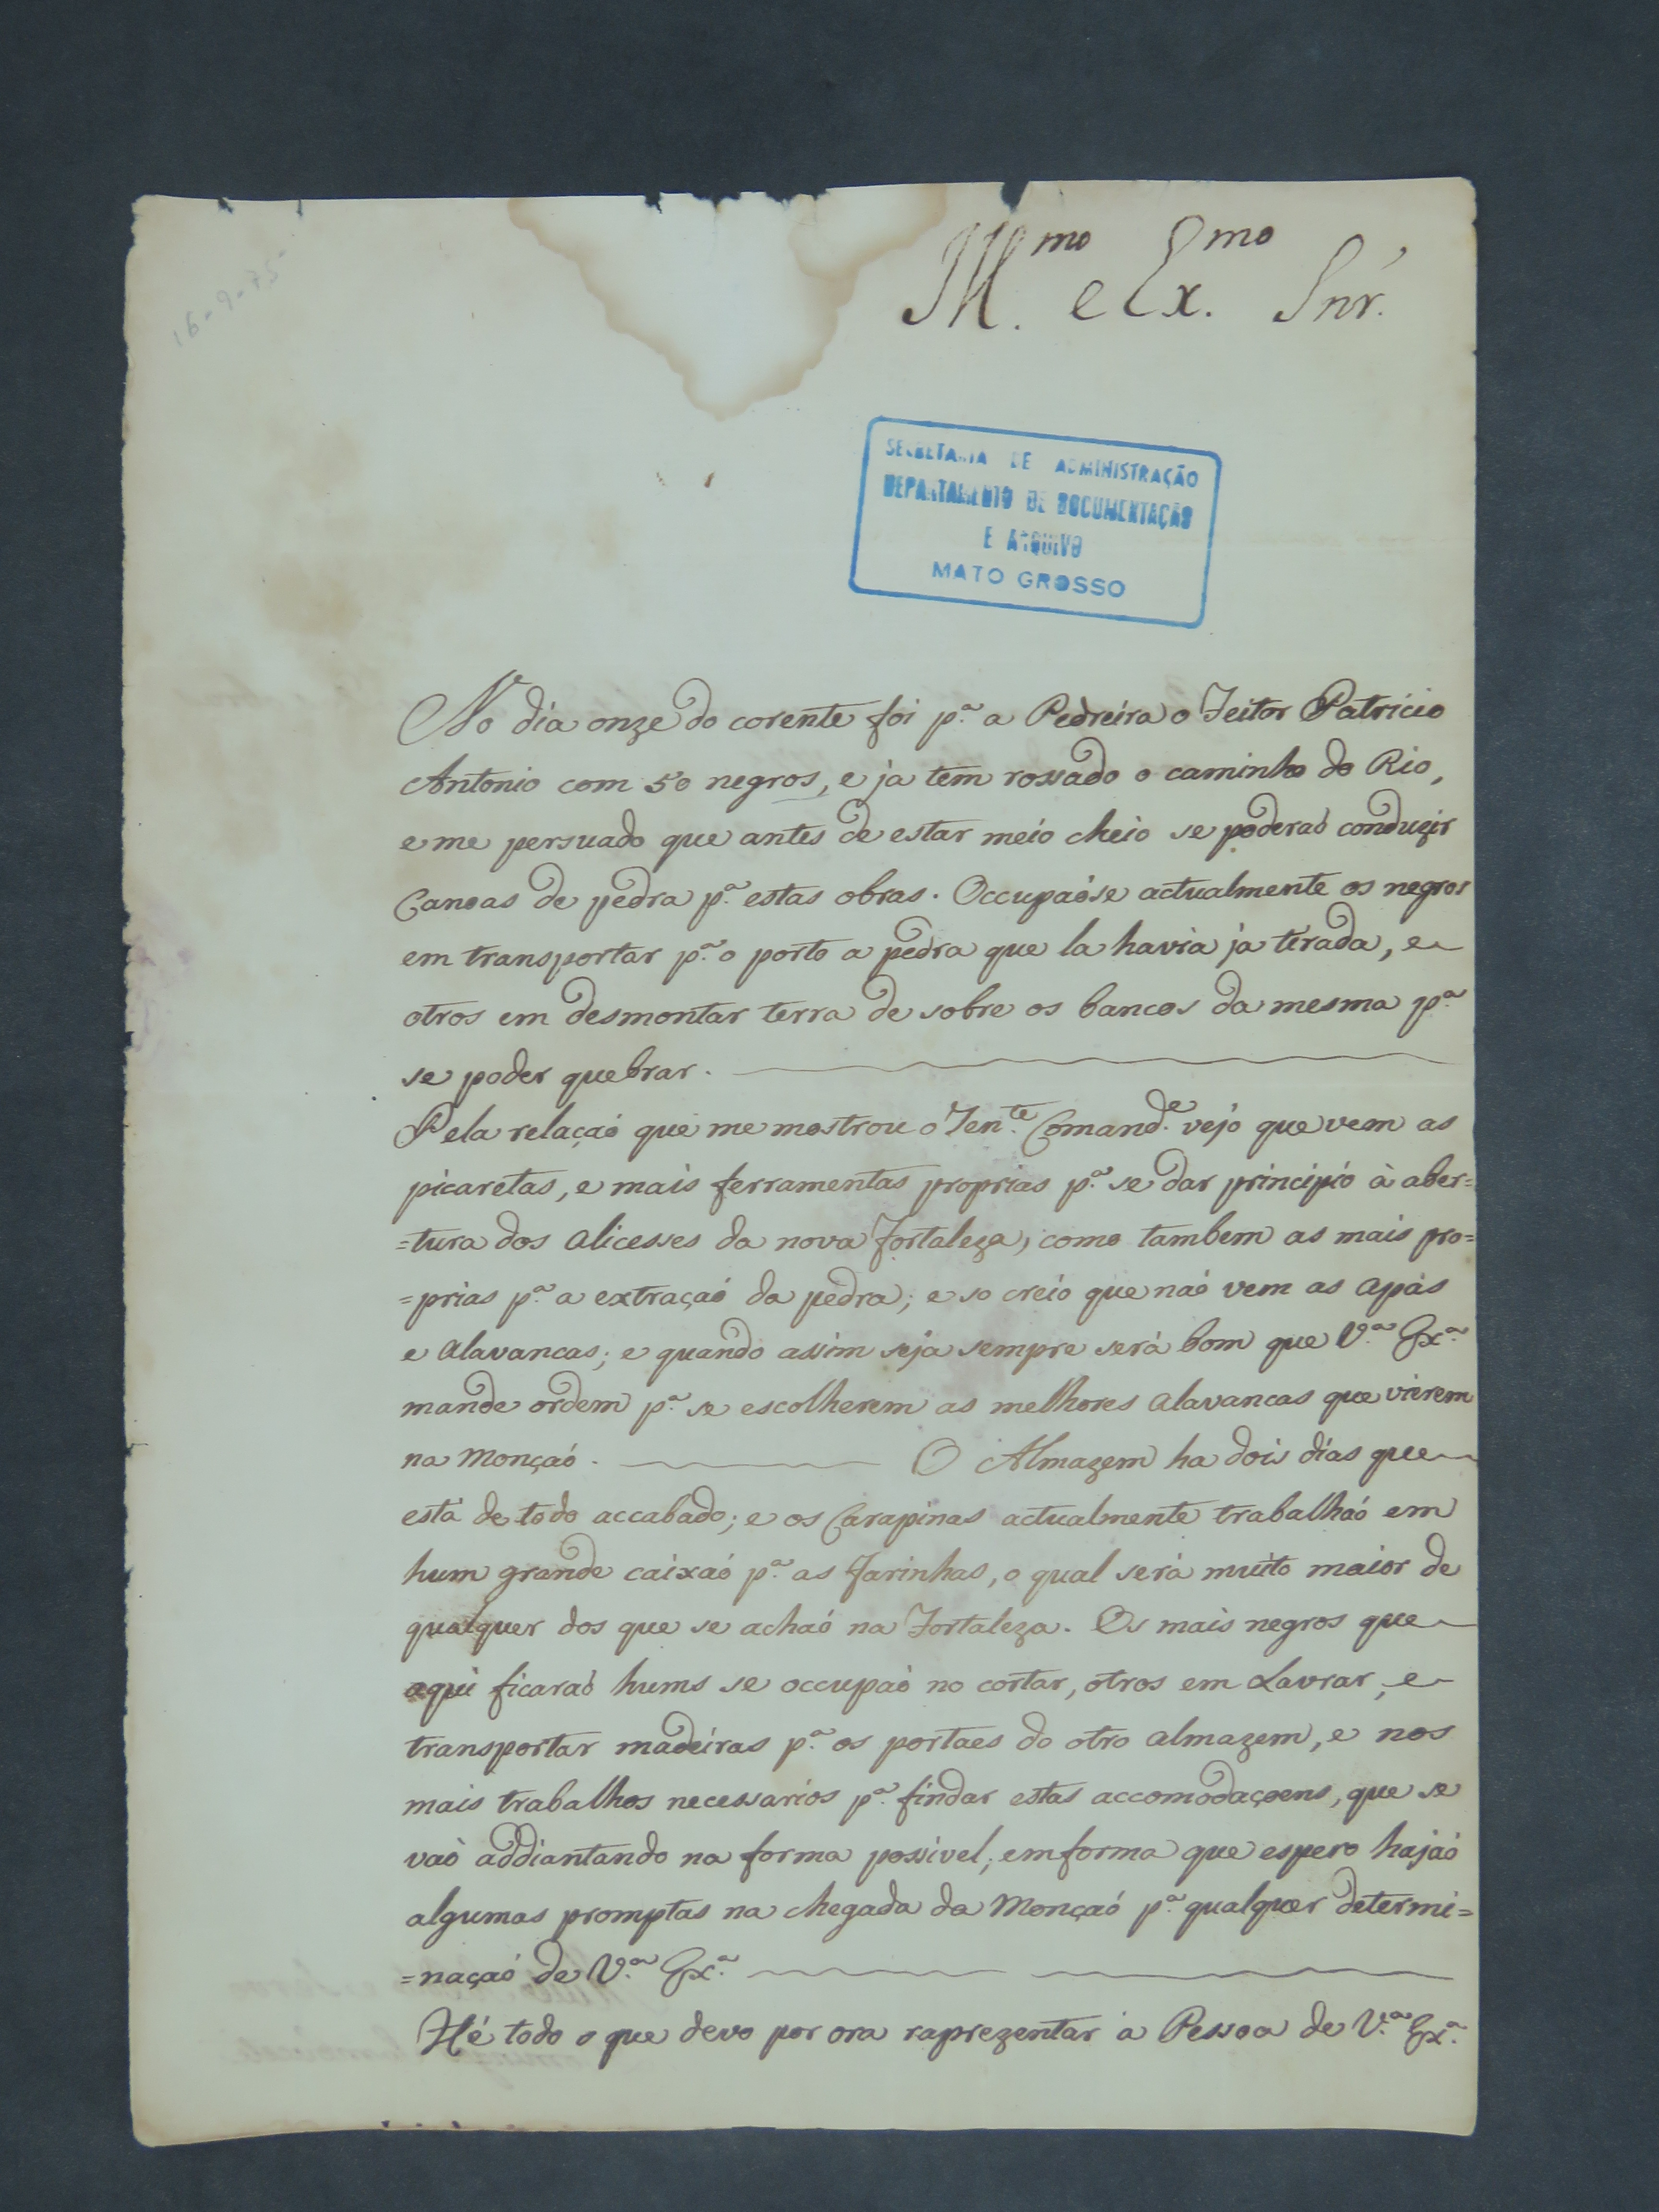 16-9-75
Ill.mo e Ex.mo Snr.
SECRETARIA DE ADMINISTRAÇÃO
DEPARTAMENTO DE DOCUMENTAÇÃO
E ARQUIVO
MATO GROSSO
No dia onze do corente foi p.a a Pedreira o Feitor Patricio
Antonio com 50 negros, e ja tem rossado o caminho do Rio,
e me persuado que antes de estar meio cheio se poderaó conduzir
Canoas de pedra p.a estas obras. Occupaóse actualmente os negros
em transportar p.a o porto a pedra que la havia ja terada, e
otros em desmontar terra de sobre os bancos da mesma p.a
se poder quebrar.
Pela relaçaó que me mostrou o Ten.te Comand.e vejo que vem as
picaretas, e mais ferramentas proprias p.a se dar principio à aber=
=tura dos alicesses da nova Fortaleza, como tambem as mais pro=
=prias p.a a extraçaó da pedra; e so creio que naó vem as apás
e alavancas; e quando assim seja sempre será bom que V.a Ex.a
mande ordem p.a se escolherem as melhores alavancas que vierem
na Monçaó. O Almazem ha dois dias que
está de todo accabado; e os Carapinas actualmente trabalhaó em
hum grande caixaó p.a as Farinhas, o qual será muito maior de
qualquer dos que se achaó na Fortaleza. Os mais negros que
aqui ficaraó hums se occupaó no cortar, otros em Lavrar, e
transportar madeiras p.a os portaes do otro almazem, e nos
mais trabalhos necessarios p.a findar estas accomodaçoens, que se
vaó addiantando na forma possivel; em forma que espero hajaó
algumas promptas na chegada da Monçaó p.a qualquer determi=
=naçaó de V.a Ex.a
Hé todo o que devo por ora raprezentar a Pessoa de V.a Ex.a